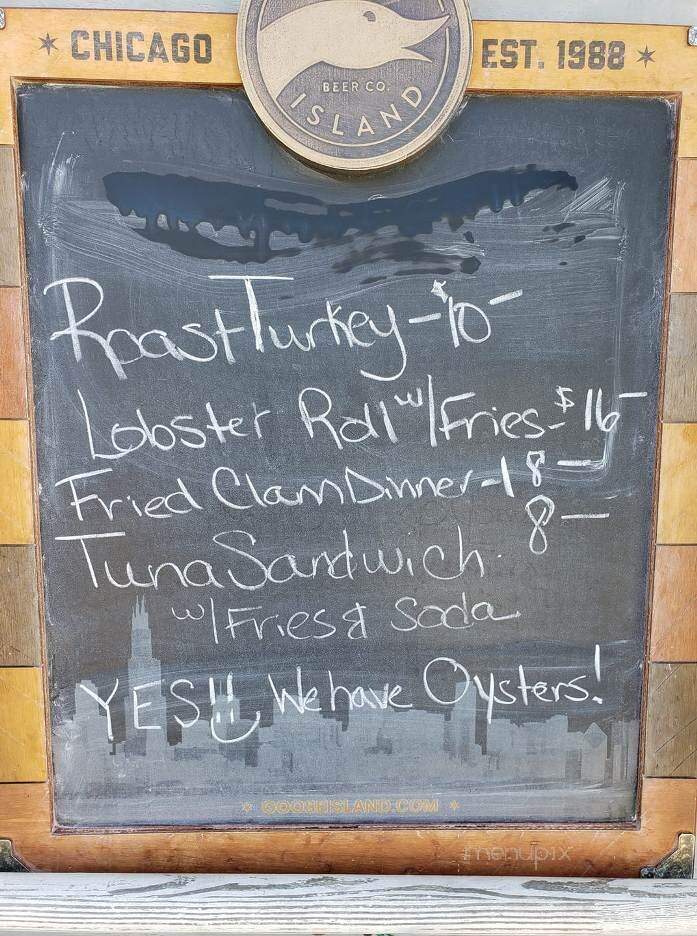 CHICAGO
BEER CO.
ISLAND
EST. 1988
Roast Turkey - $10 -
Lobster Roll w/Fries - $16 -
Fried Clam Dinner - 18 -
Tuna Sandwich 8 -
w/Fries & Soda
YES!! We have Oysters!
GOOSEISLAND.COM
menupix